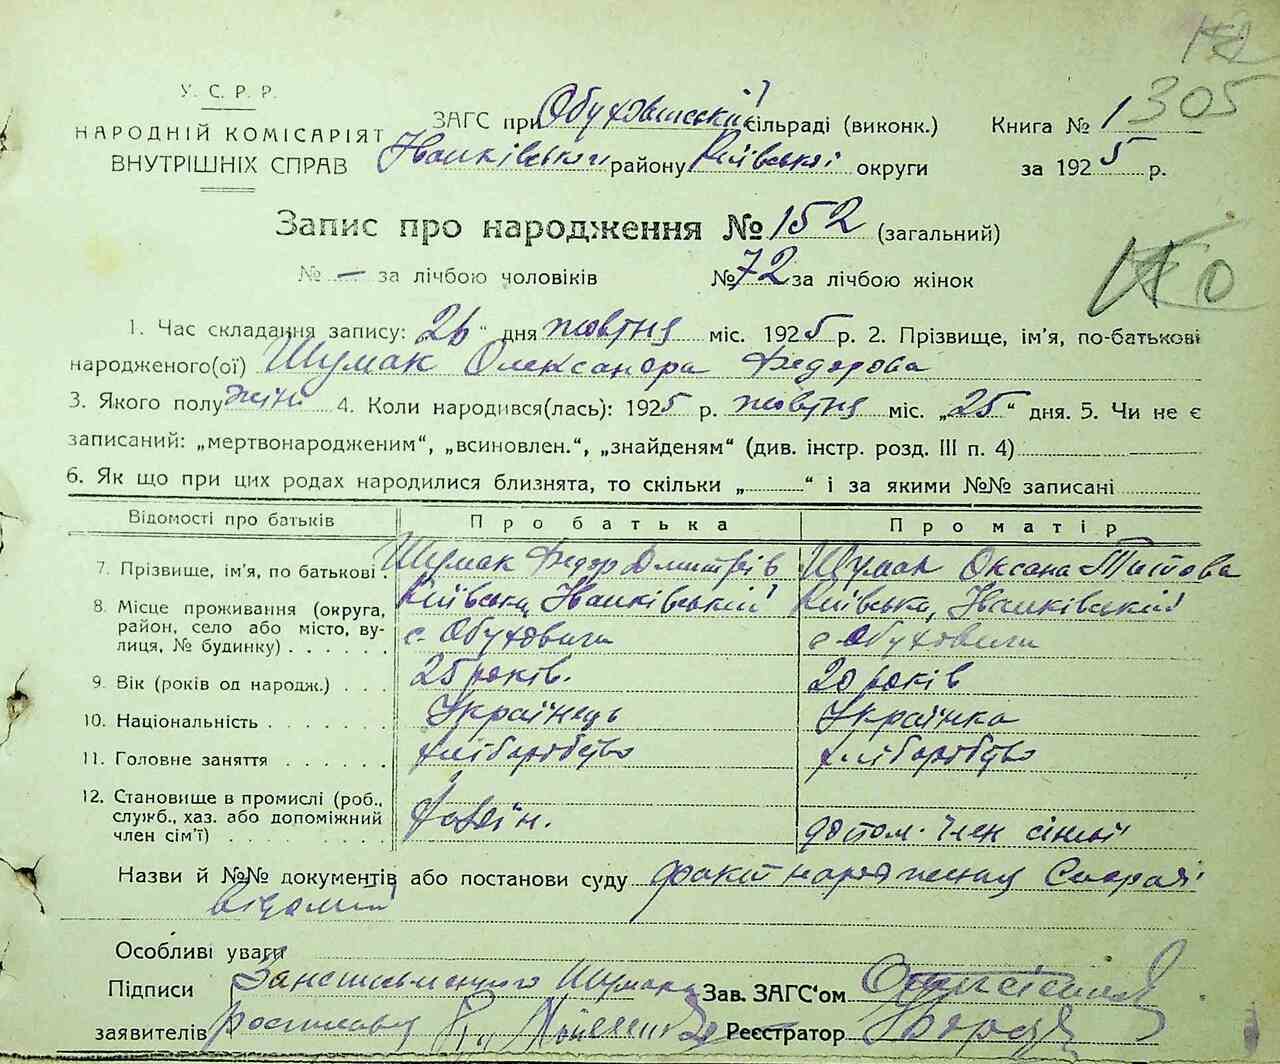 У. С. Р. Р.
НАРОДНІЙ КОМІСАРІЯТ
ВНУТРІШНІХ СПРАВ
305
ЗАГС при Обуховицькій сільраді (виконк.)
Іванківського району Київської округи
Книга № 1
за 1925 р.
Запис про народження № 152 (загальний)
№ — за лічбою чоловіків № 72 за лічбою жінок
1. Час складання запису: 26 " дня жовтня міс. 1925 р. 2. Прізвище, ім'я, по-батькові
народженого(ої) Шумак Олександра Федорова
3. Якого полу жін 4. Коли народився(лась): 1925 р. жовтня міс. „25" дня. 5. Чи не є
записаний: „мертвонародженим", „всиновлен.", „знайденям" (див. інстр. розд. III п. 4)
6. Як що при цих родах народилися близнята, то скільки „ " і за якими №№ записані
Відомості про батьків Про батька Про матір
7. Прізвище, ім'я, по батькові . Шумак Федор Дмитрів Шумак Оксана Титова
8. Місце проживання (округа, Київська Іванківський Київська, Іванківський
район, село або місто, ву- с. Обуховичи с Обуховичи
лиця, № будинку) . . . . . .
9. Вік (років од народж.) . . . 25 років. 20 років
10. Національність . . . . . . . Українець Українка
11. Головне заняття . . . . . . хліборобство хліборобство
12. Становище в промислі (роб.,
служб., хаз. або допоміжний хазяїн. допом. член сімьї
член сім'ї) . . . . . . . .
Назви й №№ документів або постанови суду факт народження
відомий
Особливі уваги
Підписи За неписьменного Шумака Зав. ЗАГС'ом
заявителів росписався Реєстратор